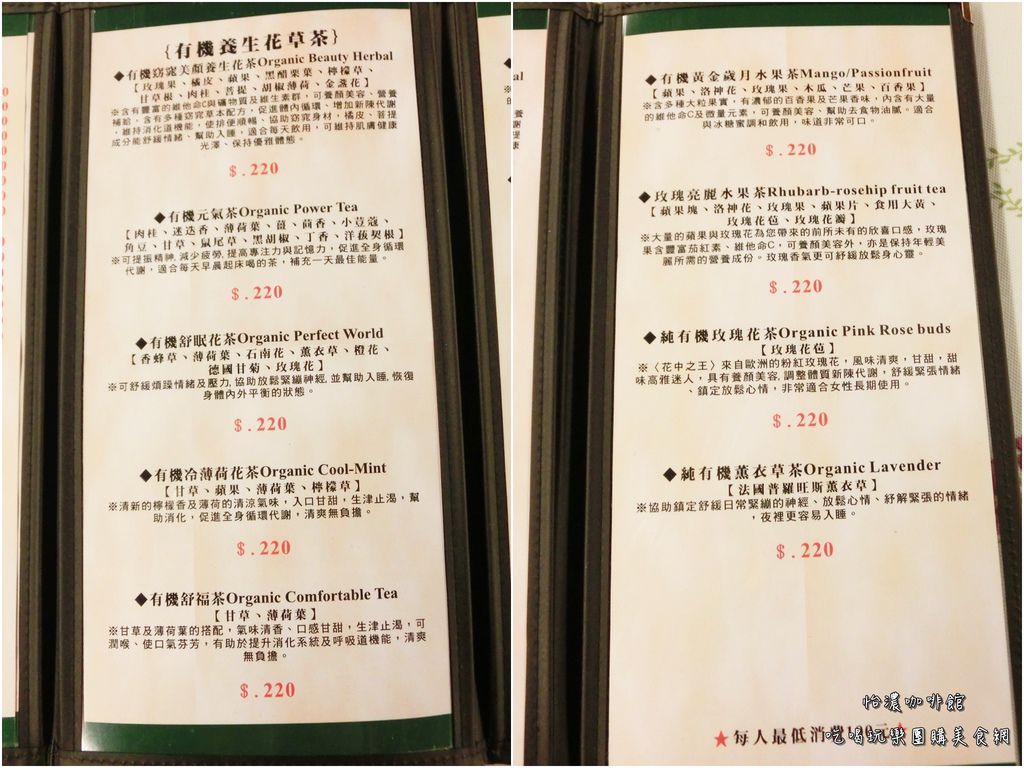 {有機養生花草茶}
◆有機窈窕美顏養生花茶Organic Beauty Herbal
【玫瑰果、橘皮、蘋果、黑醋栗葉、檸檬草、
甘草根、肉桂、菩提、胡椒薄荷、金盞花】
※含有豐富的維他命C與礦物質及維生素群，可養顏美容、營養
補給，含有多種窈窕草本配方，促進體內循環、增加新陳代謝
，維持消化道機能，使排便順暢、協助窈窕身材，橘皮、菩提
成分能舒緩情緒、幫助入睡，適合每天飲用，可維持肌膚健康
光澤、保持優雅體態。
$.220
◆有機元氣茶Organic Power Tea
【肉桂、迷迭香、薄荷葉、薑、茴香、小荳蔻、
角豆、甘草、鼠尾草、黑胡椒、丁香、洋菝契根】
※可提振精神,減少疲勞,提高專注力與記憶力，促進全身循環
代謝，適合每天早晨起床喝的茶，補充一天最佳能量。
$.220
◆有機舒眠花茶Organic Perfect World
【香蜂草、薄荷葉、石南花、薰衣草、橙花、
德國甘菊、玫瑰花】
※可舒緩煩躁情緒及壓力,協助放鬆緊繃神經,並幫助入睡,恢復
身體內外平衡的狀態。
$.220
◆有機冷薄荷花茶Organic Cool-Mint
【甘草、蘋果、薄荷葉、檸檬草】
※清新的檸檬香及薄荷的清涼氣味，入口甘甜，生津止渴，幫
助消化，促進全身循環代謝，清爽無負擔。
$.220
◆有機舒福茶Organic Comfortable Tea
【甘草、薄荷葉】
※甘草及薄荷葉的搭配，氣味清香、口感甘甜，生津止渴，可
潤喉、使口氣芬芳，有助於提升消化系統及呼吸道機能，清爽
無負擔。
$.220
◆有機黃金歲月水果茶Mango/Passionfruit
【蘋果、洛神花、玫瑰果、木瓜、芒果、百香果】
※含多種大粒果實，有濃郁的百香果及芒果香味，內含有大量
的維他命C及微量元素，可養顏美容、幫助去食物油膩。適合
與冰糖蜜調和飲用，味道非常可口。
$.220
◆玫瑰亮麗水果茶Rhubarb-rosehip fruit tea
【蘋果塊、洛神花、玫瑰果、蘋果片、食用大黃、
玫瑰花苞、玫瑰花瓣】
※大量的蘋果與玫瑰花為您帶來的前所未有的欣喜口感，玫瑰
果含豐富茄紅素、維他命C，可養顏美容外，亦是保持年輕美
麗所需的營養成份。玫瑰香氣更可紓緩放鬆身心靈。
$.220
◆純有機玫瑰花茶Organic Pink Rose buds
【玫瑰花苞】
※〈花中之王〉來自歐洲的粉紅玫瑰花，風味清爽，甘甜，甜
味高雅迷人，具有養顏美容,調整體質新陳代謝，舒緩緊張情緒
、鎮定放鬆心情，非常適合女性長期使用。
$.220
◆純有機薰衣草茶Organic Lavender
【法國普羅旺斯薰衣草】
※協助鎮定舒緩日常緊繃的神經、放鬆心情、紓解緊張的情緒
，夜裡更容易入睡。
$.220
★每人最低消費120元★
怡濃咖啡館
吃喝玩樂團購美食網